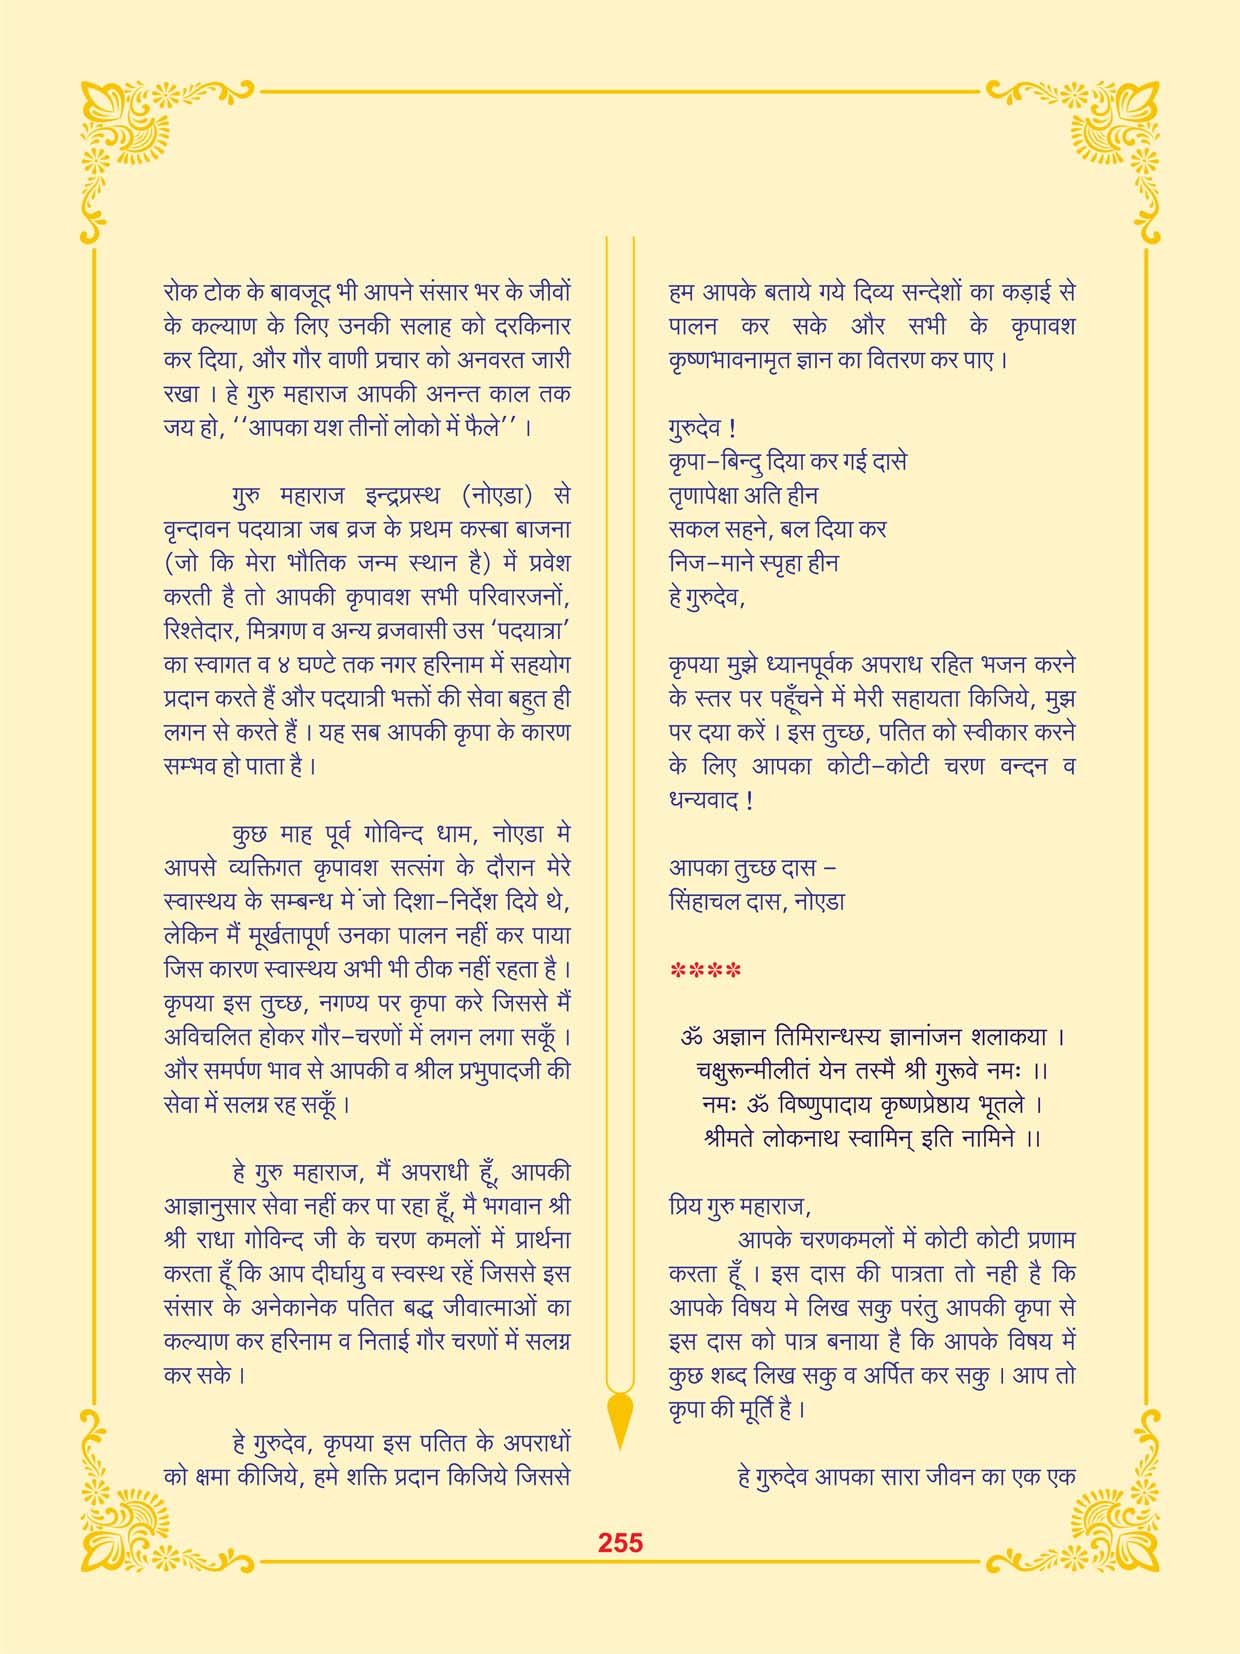 रोक टोक के बावजूद भी आपने संसार भर के जीवों
के कल्याण के लिए उनकी सलाह को दरकिनार
कर दिया, और गौर वाणी प्रचार को अनवरत जारी
रखा । हे गुरु महाराज आपकी अनन्त काल तक
जय हो, ‘‘आपका यश तीनों लोको में फैले’’ ।
गुरु महाराज इन्द्रप्रस्थ (नोएडा) से
वृन्दावन पदयात्रा जब व्रज के प्रथम कस्बा बाजना
(जो कि मेरा भौतिक जन्म स्थान है) में प्रवेश
करती है तो आपकी कृपावश सभी परिवारजनों,
रिश्तेदार, मित्रगण व अन्य व्रजवासी उस ‘पदयात्रा’
का स्वागत व ४ घण्टे तक नगर हरिनाम में सहयोग
प्रदान करते हैं और पदयात्री भक्तों की सेवा बहुत ही
लगन से करते हैं । यह सब आपकी कृपा के कारण
सम्भव हो पाता है ।
कुछ माह पूर्व गोविन्द धाम, नोएडा मे
आपसे व्यक्तिगत कृपावश सत्संग के दौरान मेरे
स्वास्थय के सम्बन्ध में जो दिशा-निर्देश दिये थे,
लेकिन मैं मूर्खतापूर्ण उनका पालन नहीं कर पाया
जिस कारण स्वास्थय अभी भी ठीक नहीं रहता है ।
कृपया इस तुच्छ, नगण्य पर कृपा करे जिससे मैं
अविचलित होकर गौर-चरणों में लगन लगा सकूँ ।
और समर्पण भाव से आपकी व श्रील प्रभुपादजी की
सेवा में सलग्न रह सकूँ ।
हे गुरु महाराज, मैं अपराधी हूँ, आपकी
आज्ञानुसार सेवा नहीं कर पा रहा हूँ, मै भगवान श्री
श्री राधा गोविन्द जी के चरण कमलों में प्रार्थना
करता हूँ कि आप दीर्घायु व स्वस्थ रहें जिससे इस
संसार के अनेकानेक पतित बद्ध जीवात्माओं का
कल्याण कर हरिनाम व निताई गौर चरणों में सलग्न
कर सके ।
हे गुरुदेव, कृपया इस पतित के अपराधों
को क्षमा कीजिये, हमे शक्ति प्रदान किजिये जिससे
हम आपके बताये गये दिव्य सन्देशों का कड़ाई से
पालन कर सके और सभी के कृपावश
कृष्णभावनामृत ज्ञान का वितरण कर पाए ।
गुरुदेव !
कृपा-बिन्दु दिया कर गई दासे
तृणापेक्षा अति हीन
सकल सहने, बल दिया कर
निज-माने स्पृहा हीन
हे गुरुदेव,
कृपया मुझे ध्यानपूर्वक अपराध रहित भजन करने
के स्तर पर पहूँचने में मेरी सहायता किजिये, मुझ
पर दया करें । इस तुच्छ, पतित को स्वीकार करने
के लिए आपका कोटी-कोटी चरण वन्दन व
धन्यवाद !
आपका तुच्छ दास -
सिंहाचल दास, नोएडा
****
ॐ अज्ञान तिमिरान्धस्य ज्ञानांजन शलाकया ।
चक्षुरून्मीलीतं येन तस्मै श्री गुरूवे नमः ।।
नमः ॐ विष्णुपादाय कृष्णप्रेष्ठाय भूतले ।
श्रीमते लोकनाथ स्वामिन् इति नामिने ।।
प्रिय गुरु महाराज,
आपके चरणकमलों में कोटी कोटी प्रणाम
करता हूँ । इस दास की पात्रता तो नही है कि
आपके विषय मे लिख सकु परंतु आपकी कृपा से
इस दास को पात्र बनाया है कि आपके विषय में
कुछ शब्द लिख सकु व अर्पित कर सकु । आप तो
कृपा की मूर्ति है ।
हे गुरुदेव आपका सारा जीवन का एक एक
255